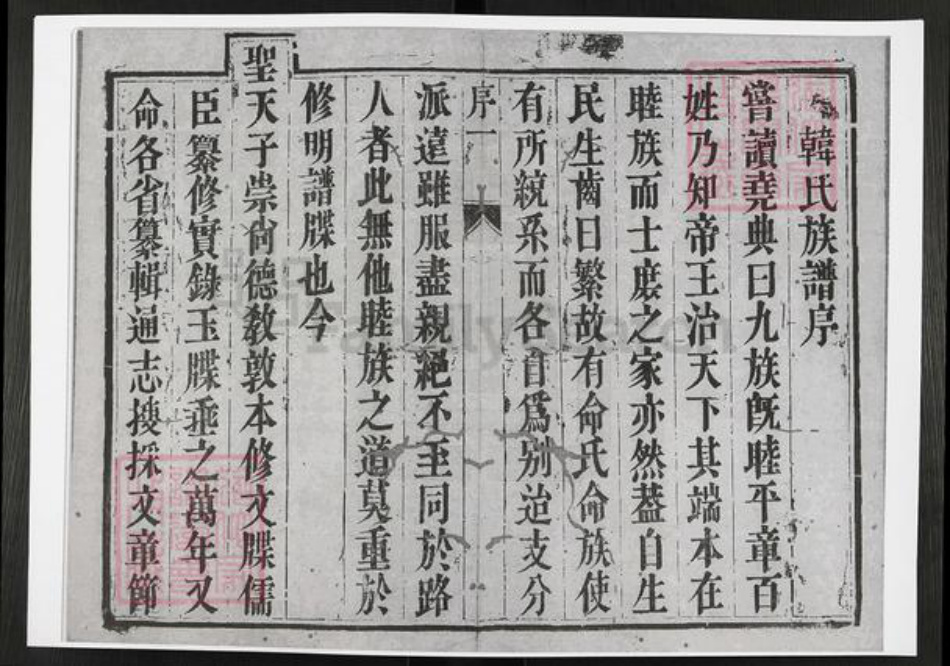 韓氏族譜序
嘗讀堯典曰九族旣睦平章百
姓乃知帝王治天下其端本在
睦族而士庶之家亦然葢自生
民生齒日繁故有命氏命族使
有所統系而各自爲别迨支分
序一
派遠雖服盡親絕不至同於路
人者此無他睦族之道莫重於
修明譜牒也今
聖天子崇尙德敎敦本修文牒儒
臣纂修實錄玉牒垂之萬年又
命各省纂輯通志搜採文章節